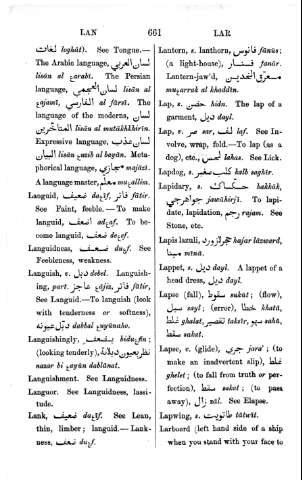 LAN 661 LAR
لغات loghāt). See Tongue.—
The Arabic language, لسان العربي
lisān al ɛarabī. The Persian
language, لسان العجمي lisān al
ɛajamī, الفارسي al fārsī. The
language of the moderns, لسان
المتاخرين lisān al mutākhkhirīn.
Expressive language, لسان عذب
lisān al bayān. Meta-
phorical language, مجازي majāzī.
A language master, معلم muɛallim.
Languid, ضعيف daɛīf, فاتر fātir.
See Faint, feeble. — To make
languid, اضعف adɛaf. To be-
come languid, ضعف doɛof.
Languidness, ضعف duɛf. See
Feebleness, weakness.
Languish, v. ذبل debel. Languish-
ing, part. عاجز ɛājiz, فاتر fātir,
See Languid.—To languish (look
with tenderness or softness),
دبل عيونه dabbal ɛuyūnaho.
Languishingly, بضعف biduɛfin;
(looking tenderly),
nazar bi ɛayūn dablānat.
Languishment. See Languidness.
Languor. See Languidness, lassi-
tude.
Lank, ضعيف daɛīf. See Lean,
thin, limber; languid.— Lank-
ness, ضعف duɛf.
Lantern, s. lanthorn, فانوس fānūs;
(a light-house), فنار fanār.
Lantern-jaw'd,
muɛarrak al khaddīn.
Lap, s. حضن hidn. The lap of a
garment, ديل dayl.
Lap, v. صر sar, لف laf. See In-
volve, wrap, fold.—To lap (as a
dog), etc., لحس lahas. See Lick.
Lapdog, s. كلب صغير kalb saghīr.
Lapidary, s. حكاك hakkāk,
جواهرجي jawāhirjī. To lapi-
date, lapidation, رجم rajam. See
Stone, etc.
Lapis lazuli, حجر لازورد hajar lāzward,
مينا mīnā.
Lappet, s. ديل dayl. A lappet of a
head dress, ديل dayl.
Lapse (fall), سقوط sukūt; (flow),
سيل sayl; (error), خطا khatā,
غلط ghalat, تقصير taksīr, سهو sahū,
سقط sakat.
Lapse, v. (glide), جري jora'; (to
make an inadvertent slip), غلط
ghelet; (to fall from truth or per-
fection), سقط sakat; (to pass
away), زال zāl. See Elapse.
Lapwing, s. طاطويت tātwīt.
Larboard (left hand side of a ship
when you stand with your face to